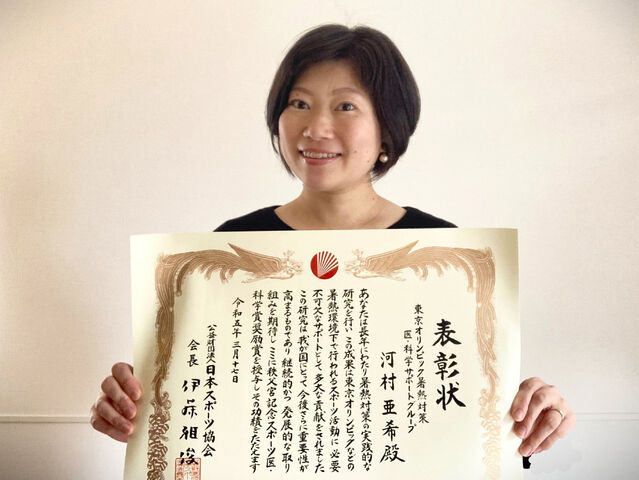 表彰状
東京オリンピック暑熱対策
医・科学サポートグループ
河村亜希殿
あなたは長年にわたり暑熱対策の実践的な
研究を行い、この成果は東京オリンピックなどの
暑熱環境下で行われるスポーツ活動に必要
不可欠なサポートとして多大な貢献をされました
この研究は我が国にとって今後さらに重要性が
高まるものであり継続的かつ発展的な取り
組みを期待しここに秩父宮記念スポーツ医・
科学賞奨励賞を授与しその功績をたたえます
令和五年三月十七日
公益財団法人日本スポーツ協会
会長 伊藤雅俊